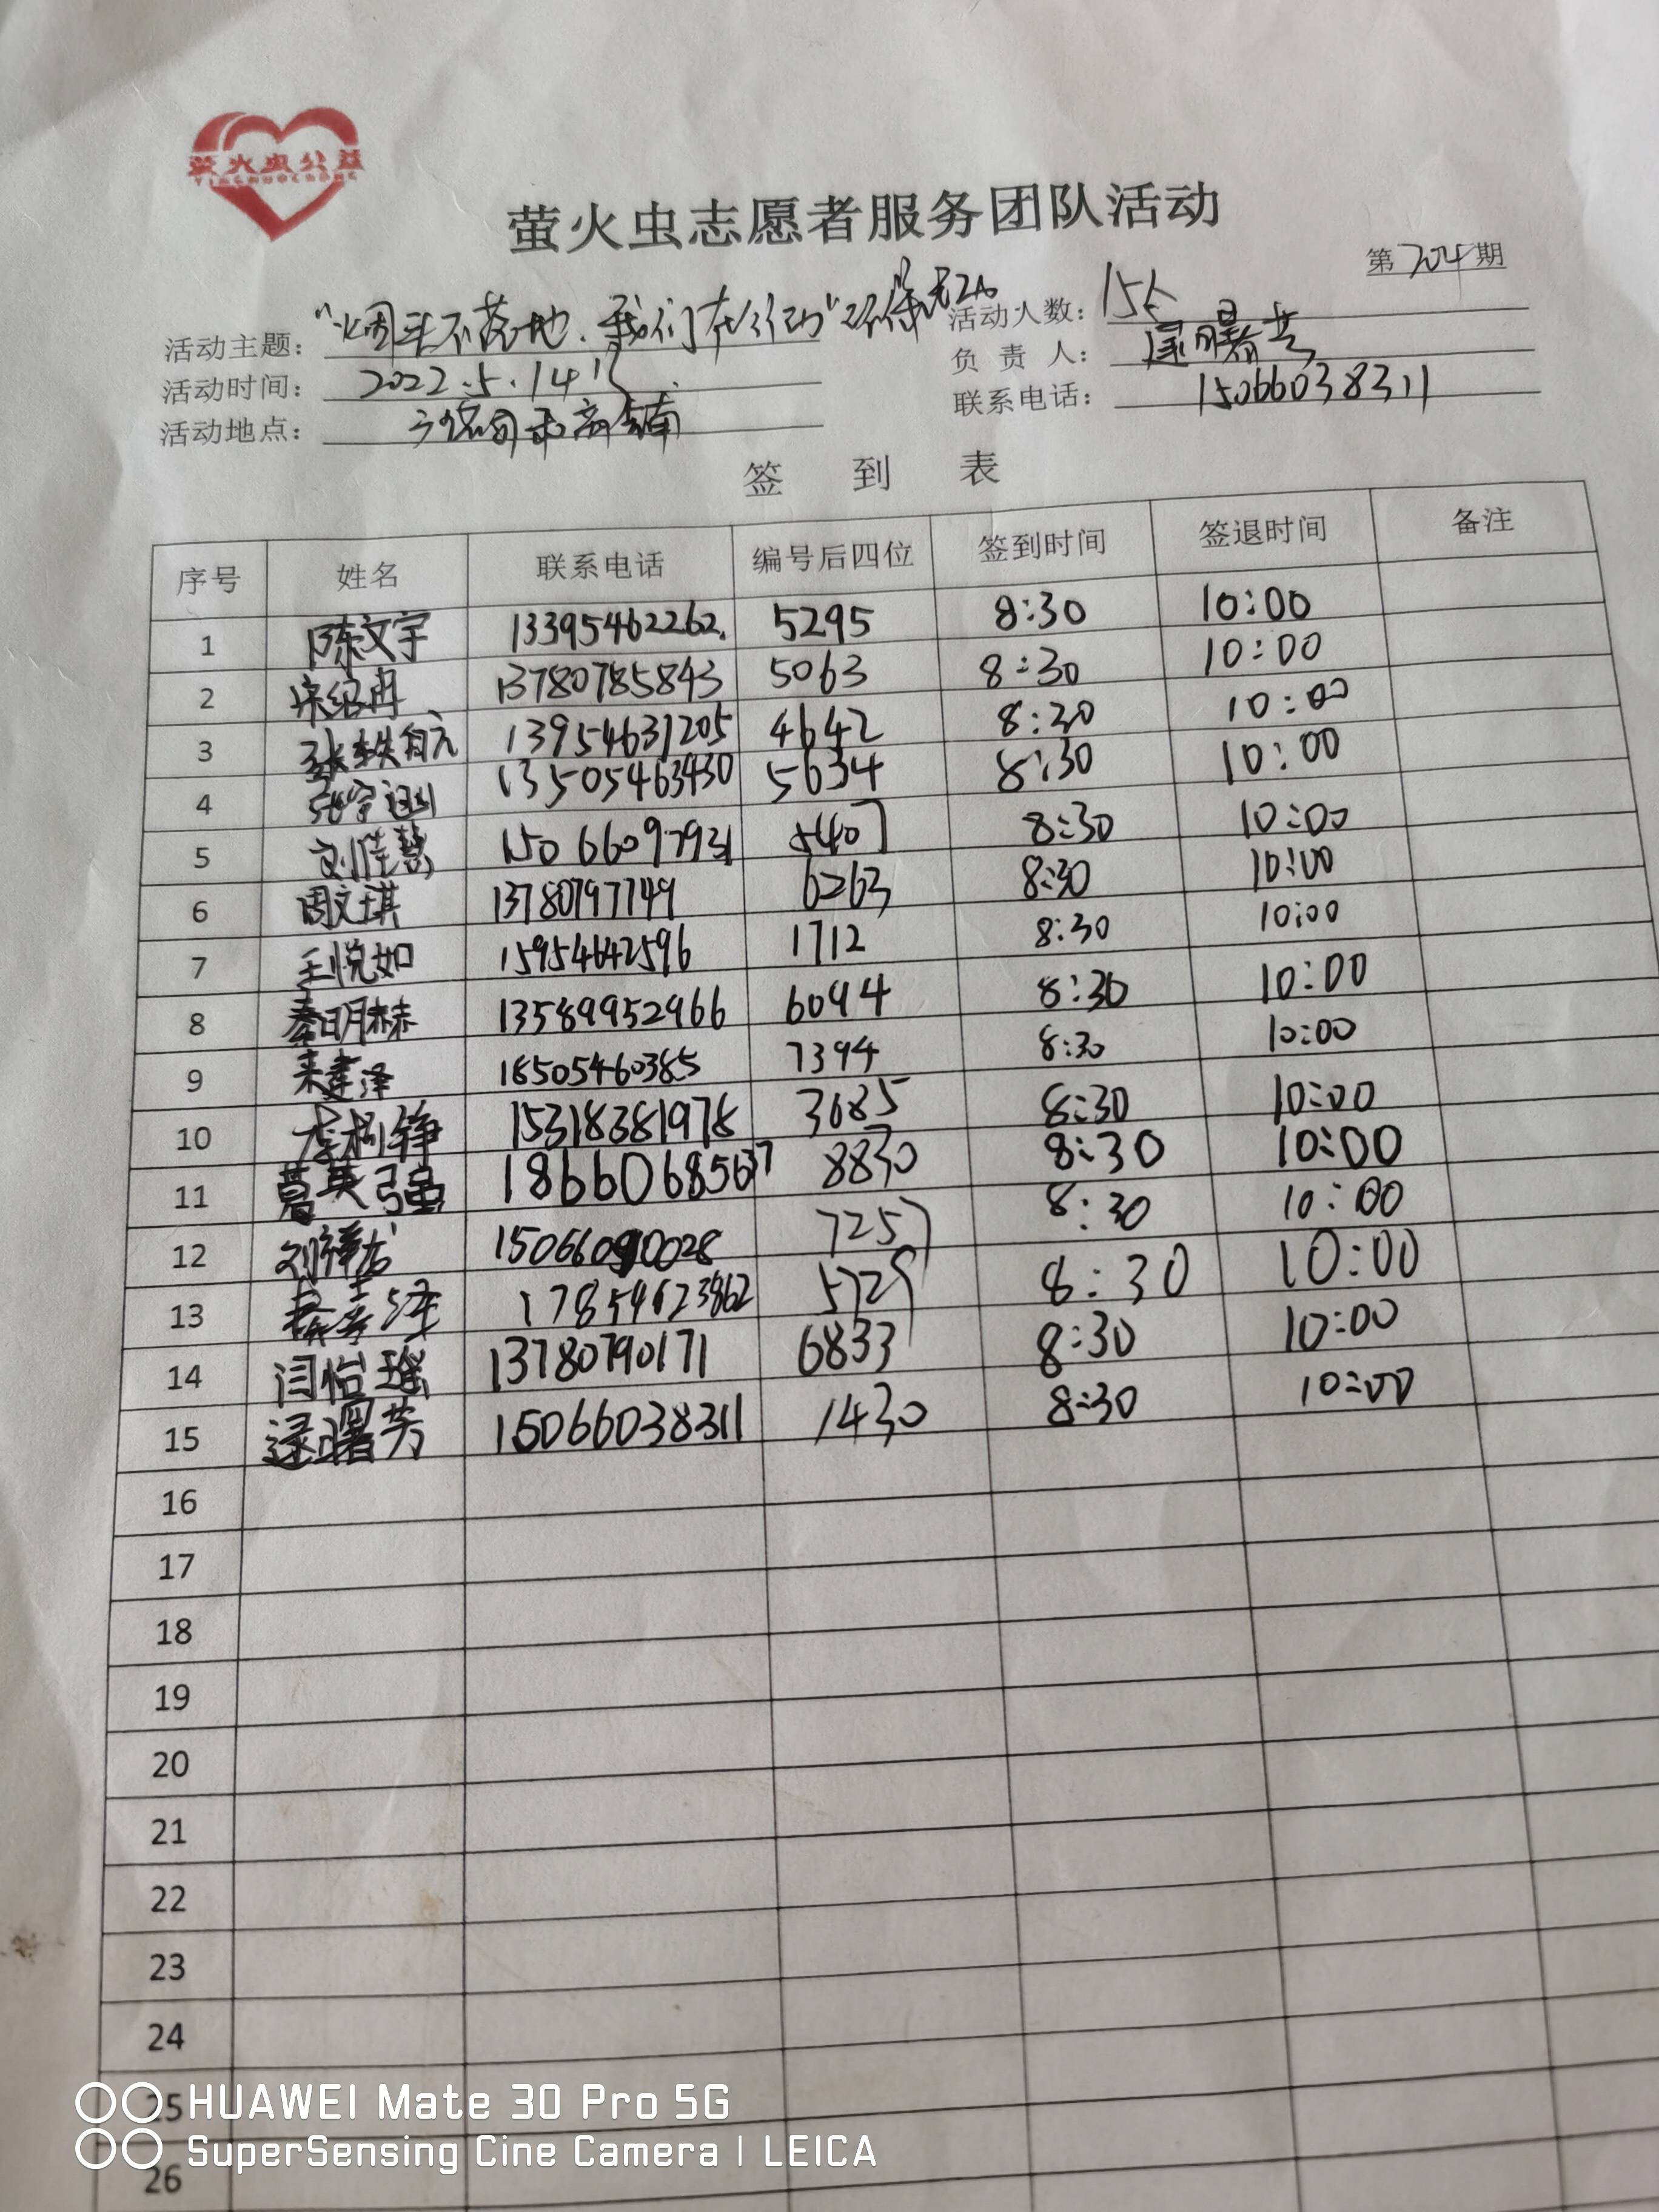 萤火虫公益
YINGHUOCHONG
萤火虫志愿者服务团队活动
第204期
活动主题: "烟头不落地.我们在行动"环保 活动人数: 15人
活动时间: 2022.5.14 负责人: 逯曙芳
活动地点: 联系电话: 15066038311
签到表
序号 姓名 联系电话 编号后四位 签到时间 签退时间 备注
1 陈文宇 13395462262. 5295 8:30 10:00
2 宋绍冉 13780785843 5063 8:30 10:00
3 张轶航 13954631205 4642 8:30 10:00
4 张宇 13505463430 5634 8:30 10:00
5 刘佳慧 15066097931 5407 8:30 10:00
6 周文琪 13780797749 6263 8:30 10:00
7 王悦如 15954642596 1712 8:30 10:00
8 秦明赫 13589952966 6094 8:30 10:00
9 来建泽 18505460385 7394 8:30 10:00
10 15318381978 3685 8:30 10:00
11 葛英强 18660685637 8830 8:30 10:00
12 刘祥龙 15066090028 7257 8:30 10:00
13 17854623862 5729 8:30 10:00
14 闫怡瑶 13780790171 6833 8:30 10:00
15 逯曙芳 15066038311 1430 8:30 10:00
16
17
18
19
20
21
22
23
24
25
26
HUAWEI Mate 30 Pro 5G
SuperSensing Cine Camera | LEICA